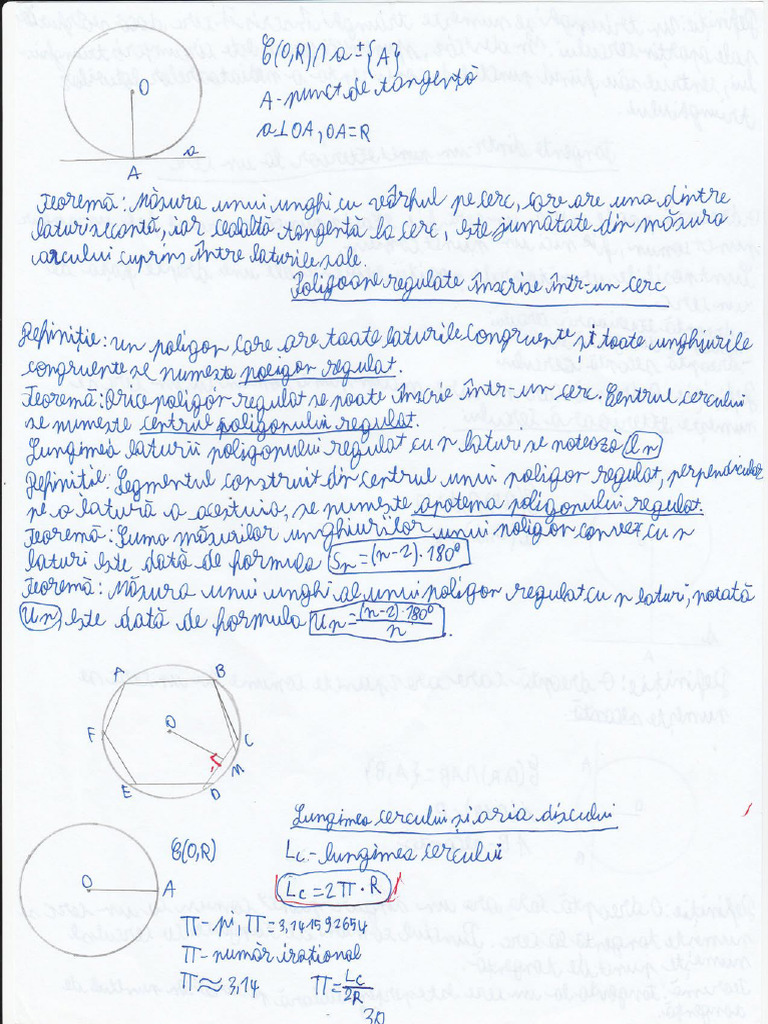 O
a
A
C(O,R)∩a={A}
A-punct de tangență
a⊥OA, OA=R
Teoremă: Măsura unui unghi cu vârful pe cerc, care are una dintre
laturi secantă, iar cealaltă tangentă la cerc, este jumătate din măsura
arcului cuprins între laturile sale.
Poligoane regulate înscrise într-un cerc
Definiție: un poligon care are toate laturile congruente și toate unghiurile
congruente se numește poligon regulat.
Teoremă: Orice poligon regulat se poate înscrie într-un cerc. Centrul cercului
se numește centrul poligonului regulat.
Lungimea laturii poligonului regulat cu n laturi se notează ln
Definiție: Segmentul construit din centrul unui poligon regulat, perpendicular
pe o latură a acestuia, se numește apotema poligonului regulat.
Teoremă: Suma măsurilor unghiurilor unui poligon convex cu n
laturi este dată de formula Sn=(n-2)·180°
Teoremă: Măsura unui unghi al unui poligon regulat cu n laturi, notată
Un, este dată de formula Un=(n-2)·180°/n.
A B
O
F C
M
E D
Lungimea cercului și aria discului
C(O,R) Lc-lungimea cercului
O A
Lc=2π·R
π-pi, π=3,141592654
π-număr irațional
π≈3,14 π=Lc/2R
30